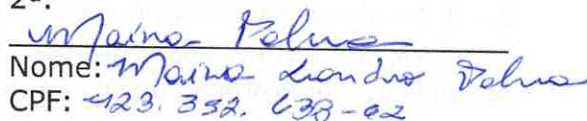 2ª.
Maina Palma
Nome: Maina Leandro Palma
CPF: 423.352.638-92